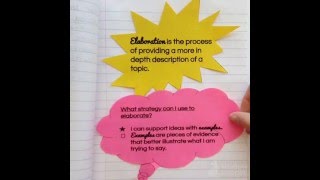 Elaboration is the process
of providing a more in
depth description of a
topic.
What strategy can I use to
elaborate?
★ I can support ideas with examples.
□ Examples are pieces of evidence
that better illustrate what I am
trying to say.